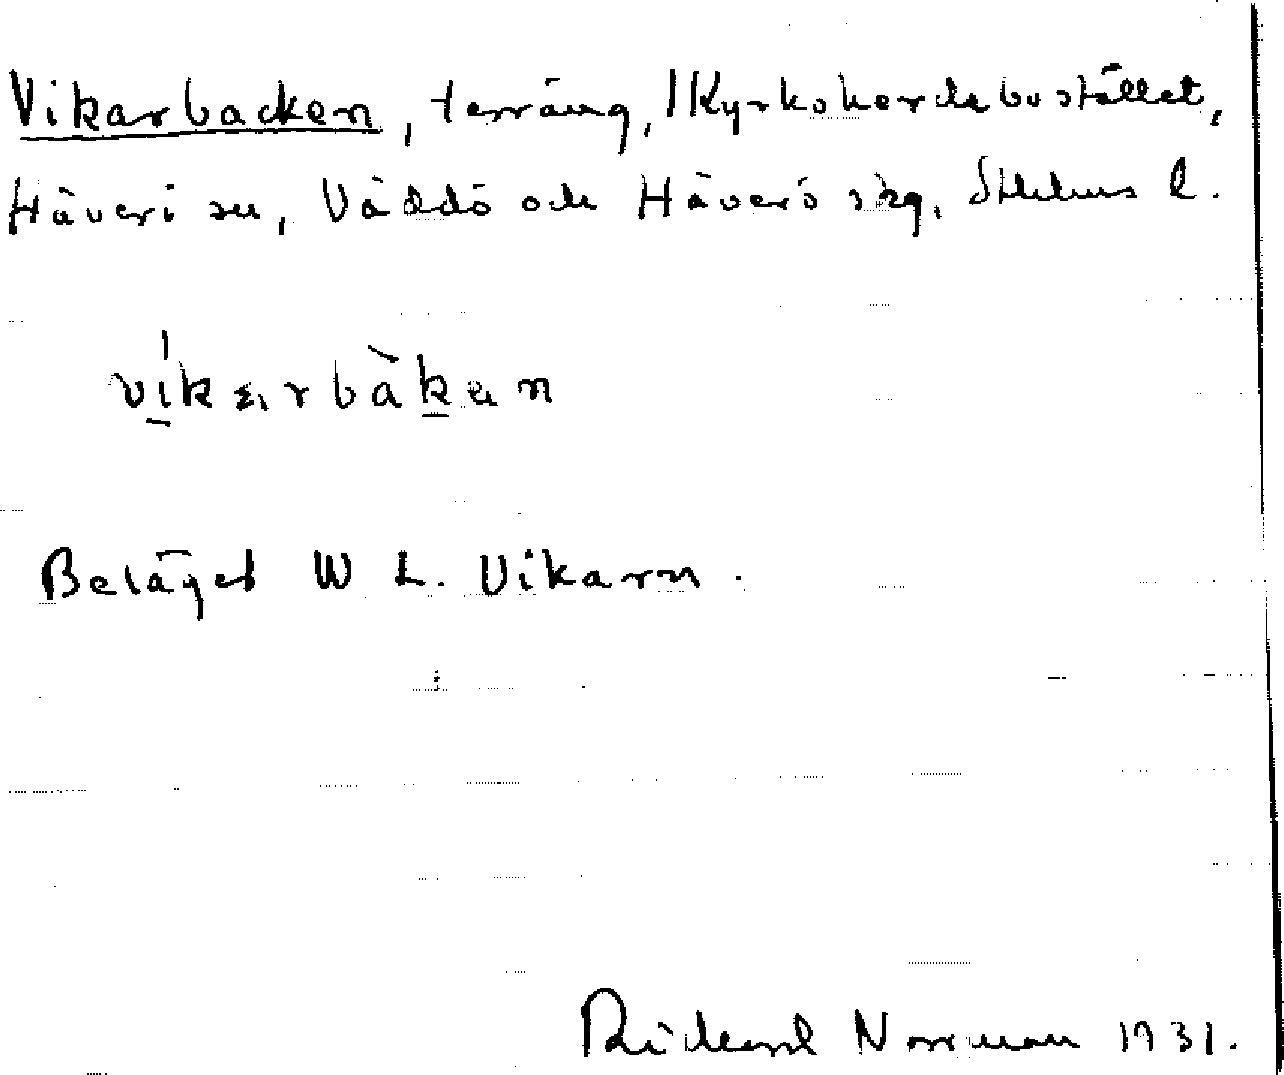 Vikarbacken, terräng, Kyrkoherdebostället,
Häverö sn, Väddö och Häverö skg, Sthlms l.
víkarbàkan
Beläget W L. Vikarn.
Rickard Norrman 1931.